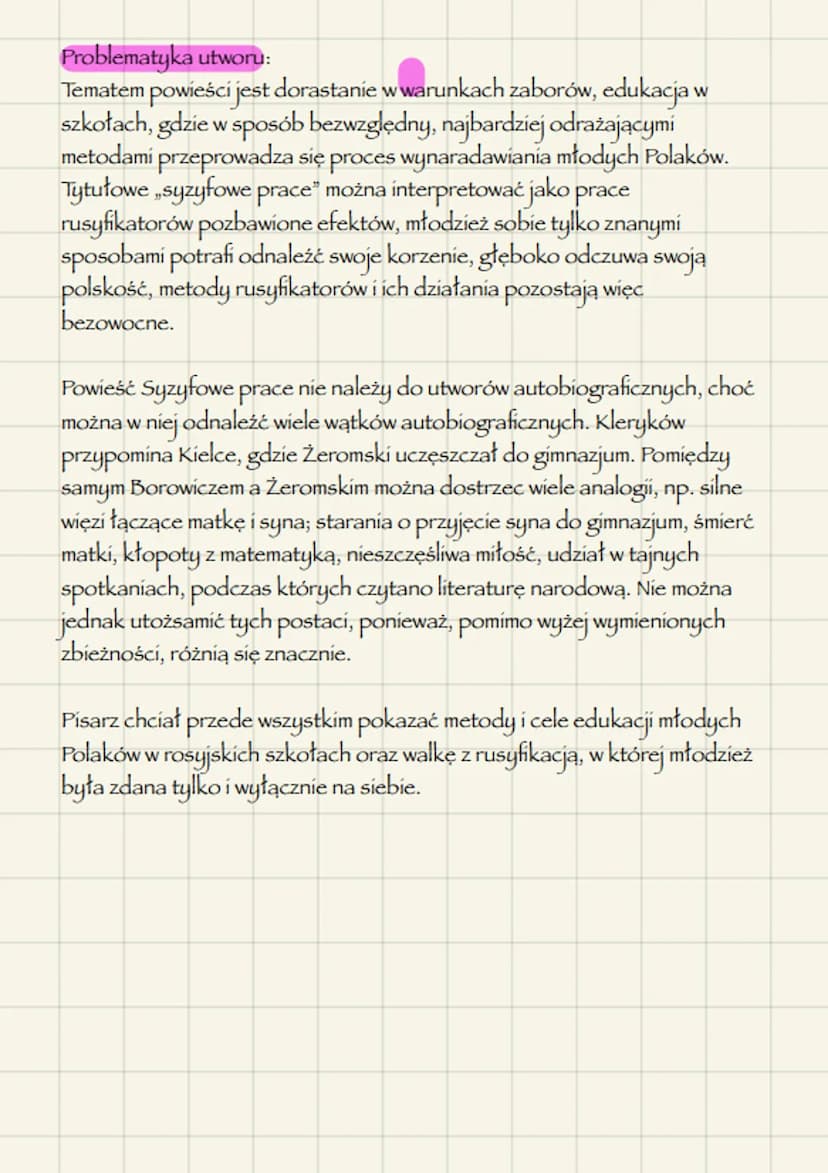 Problematyka utworu:
Tematem powieści jest dorastanie w warunkach zaborów, edukacja w
szkołach, gdzie w sposób bezwzględny, najbardziej odrażającymi
metodami przeprowadza się proces wynaradawiania młodych Polaków.
Tytułowe „syzyfowe prace” można interpretować jako prace
rusyfikatorów pozbawione efektów, młodzież sobie tylko znanymi
sposobami potrafi odnaleźć swoje korzenie, głęboko odczuwa swoją
polskość, metody rusyfikatorów i ich działania pozostają więc
bezowocne.
Powieść Syzyfowe prace nie należy do utworów autobiograficznych, choć
można w niej odnaleźć wiele wątków autobiograficznych. Kleryków
przypomina Kielce, gdzie Żeromski uczęszczał do gimnazjum. Pomiędzy
samym Borowiczem a Żeromskim można dostrzec wiele analogii, np. silne
więzi łączące matkę i syna; starania o przyjęcie syna do gimnazjum, śmierć
matki, kłopoty z matematyką, nieszczęśliwa miłość, udział w tajnych
spotkaniach, podczas których czytano literaturę narodową. Nie można
jednak utożsamić tych postaci, ponieważ, pomimo wyżej wymienionych
zbieżności, różnią się znacznie.
Pisarz chciał przede wszystkim pokazać metody i cele edukacji młodych
Polaków w rosyjskich szkołach oraz walkę z rusyfikacją, w której młodzież
była zdana tylko i wyłącznie na siebie.